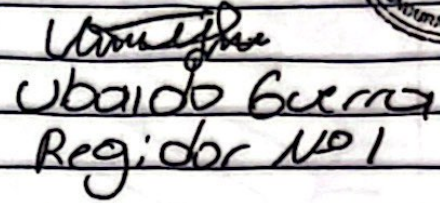 Ubaldo Guerra
Regidor Nº 1